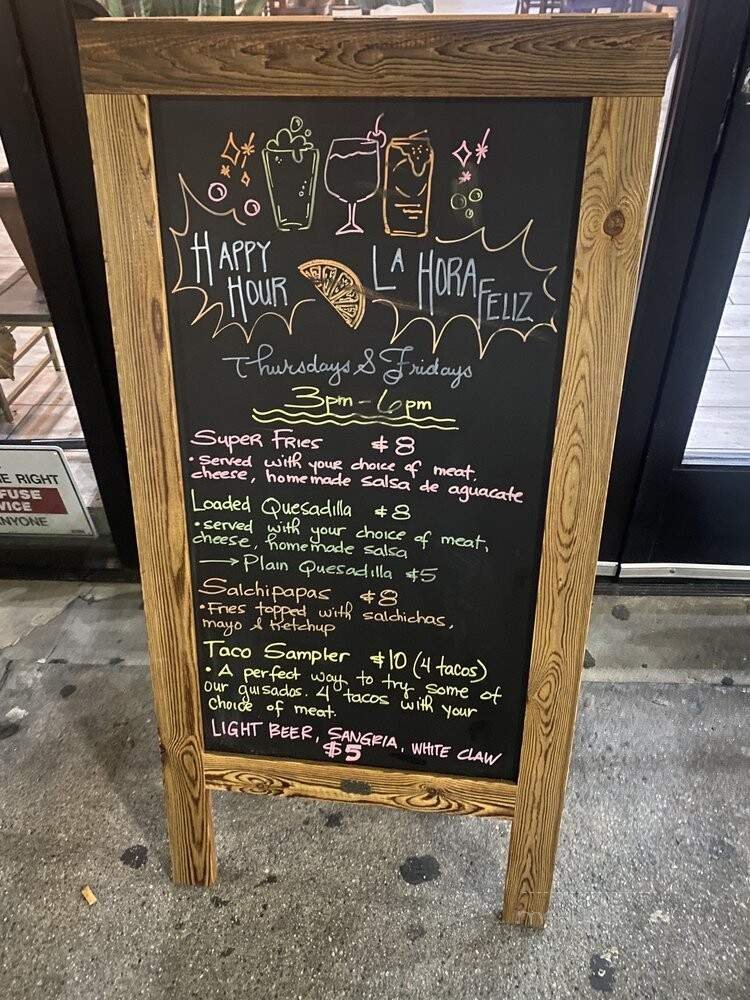 HAPPY HOUR
LA HORA FELIZ
Thursdays & Fridays
3pm - 6pm
Super Fries $8
• Served with your choice of meat,
cheese, homemade salsa de aguacate
Loaded Quesadilla $8
• served with your choice of meat,
cheese, homemade salsa
→ Plain Quesadilla $5
Salchipapas $8
• Fries topped with salchichas,
mayo & ketchup
Taco Sampler $10 (4 tacos)
• A perfect way to try some of
our guisados. 4 tacos with your
choice of meat.
LIGHT BEER, SANGRIA, WHITE CLAW
$5
E RIGHT
FUSE
VICE
ANYONE